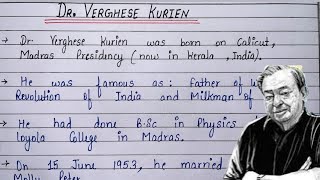 DR. VERGHESE KURIEN
→ Dr Verghese Kurien was born on Calicut,
Madras Presidency (now in Kerala, India).
→ He was famous as: father of
Revolution of India and Milkman of
→ He had done B.Sc in Physics
Loyola College in Madras.
→ On 15 June 1953, he married
Molly Peter